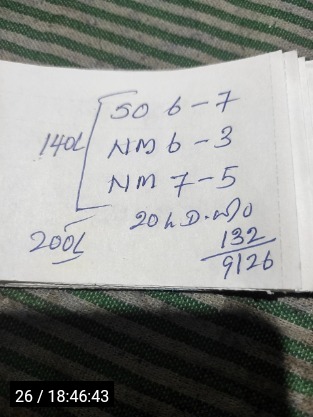 140L
SO 6-7
NM 6-3
NM 7-5
200L
20 L D.W/O
132
9126
26 / 18:46:43